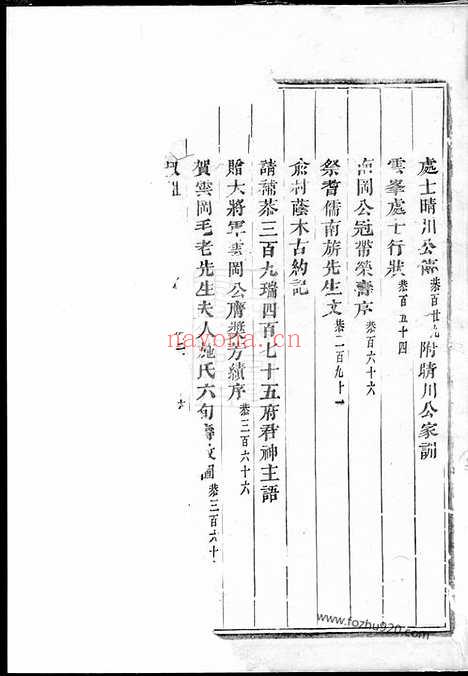 處士晴川公傳 恭百廿九 附晴川公家訓
雲峯處士行狀 恭百五十四
岡公冠帶榮壽序 恭百六十六
祭耆儒南旂先生文 恭二百九十
俞村蔭木古約記
請補恭三百九瑞四百七十五府君神主語
贈大將軍雲岡公膺獎方績序 恭三百六十六
賀雲岡毛老先生夫人施氏六旬壽文圖 恭三百六十
nayona.cn
www.fozhu920.com